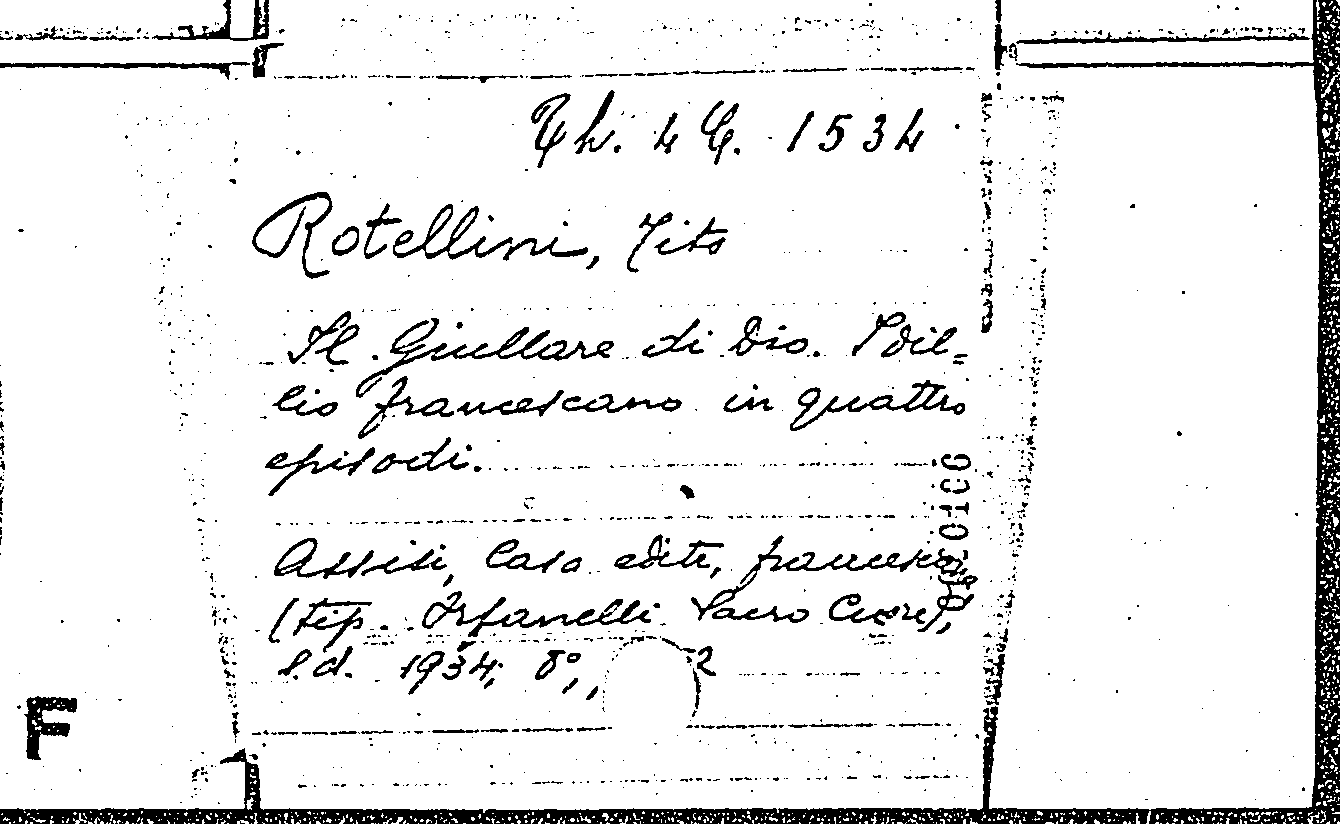 Th. 4 C. 1534
Rotellini, Tito
Il Giullare di Dio. Idil=
lio francescano in quattro
episodi.
Assisi, Casa edit. francesc.
(tip. Orfanelli Sacro Cuore),
s.d. 1934; 8°,
F